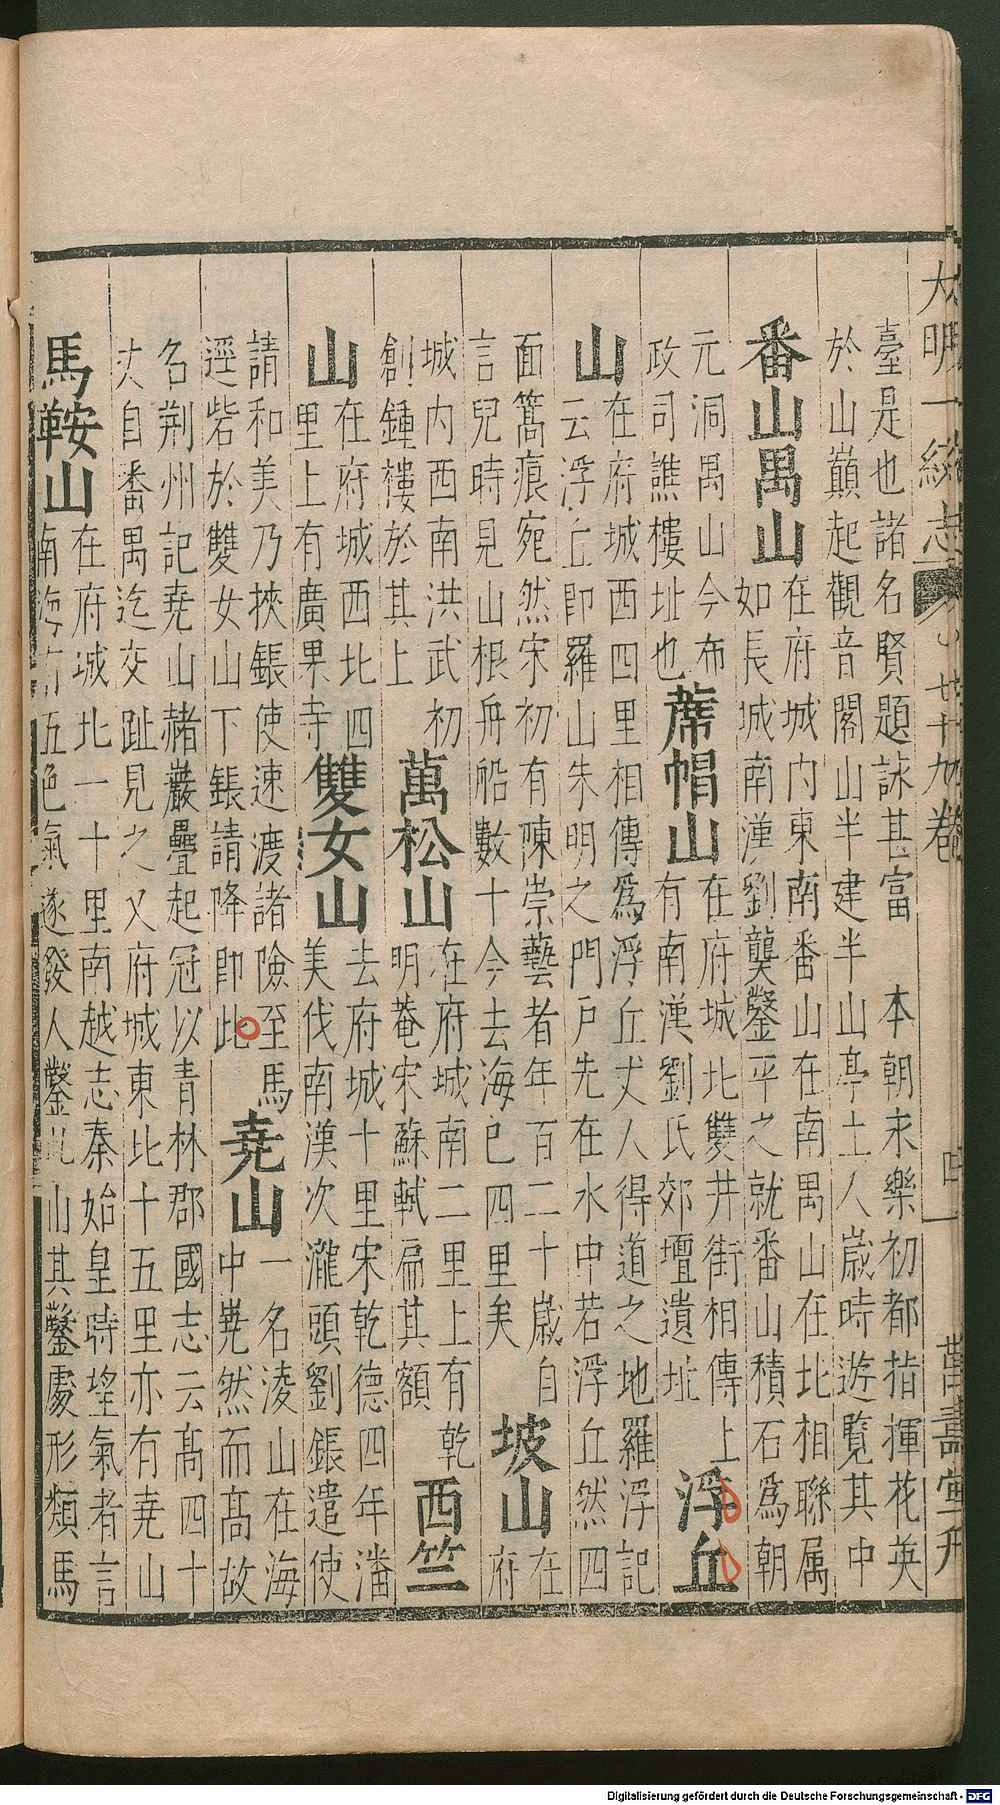 大明一統志 七十九卷 四 萬壽堂刊
臺是也諸名賢題詠甚富　本朝永樂初都指揮花英
於山巔起觀音閣山半建半山亭土人歲時遊覽其中
番山禺山
在府城内東南番山在南禺山在北相聯屬
如長城南漢劉龑鑿平之就番山積石爲朝
元洞禺山今布
政司譙樓址也
蓆帽山
在府城北雙井街相傳上
有南漢劉氏郊壇遺址
浮丘
山
在府城西四里相傳爲浮丘丈人得道之地羅浮記
云浮丘即羅山朱明之門戸先在水中若浮丘然四
面篙痕宛然宋初有陳崇藝者年百二十歲自
言兒時見山根舟船數十今去海已四里矣
坡山
在
府
城内西南洪武初
創鍾樓於其上
萬松山
在府城南二里上有乾
明菴宋蘇軾扁其額
西竺
山
在府城西北四
里上有廣果寺
雙女山
去府城十里宋乾德四年潘
美伐南漢次瀧頭劉鋹遣使
請和美乃挾鋹使速渡諸險至馬
逕砦於雙女山下鋹請降即此
尭山
一名淩山在海
中嶤然而髙故
名荆州記尭山赭巖疊起冠以青林郡國志云髙四十
丈自番禺迄交趾見之又府城東北十五里亦有尭山
馬鞍山
在府城北一十里南越志秦始皇時望氣者言
南海有五色氣遂發人鑿此山其鑿處形類馬
Digitalisierung gefördert durch die Deutsche Forschungsgemeinschaft - DFG